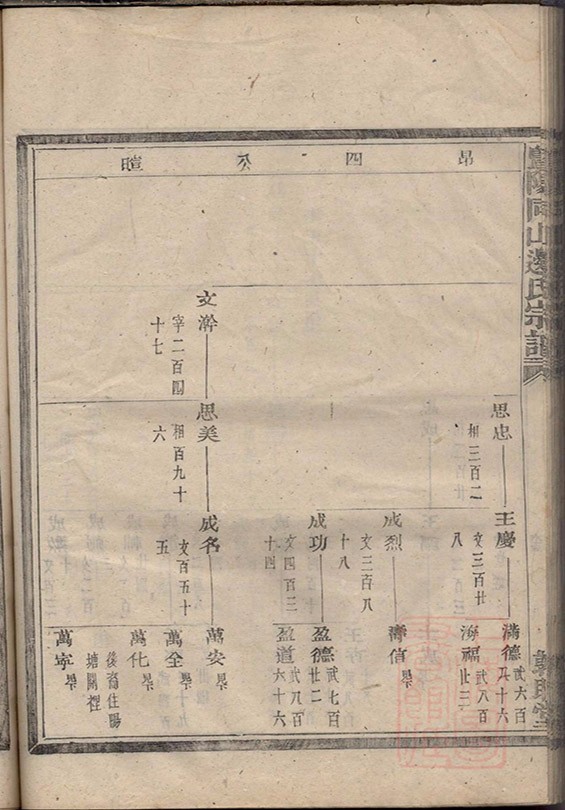 暨陽同山邊氏宗譜
昂四公暄
思忠
相三百二
王慶
文三百廿
八
滿德
武六百
海福
武八百
廿三
成烈
文三百八
十八
壽信
成功
文四百三
十四
盈德
武七百
廿二
盈道
武八百
六十六
文瀚
宰二百四
十七
思美
相百九十
六
成名
文百五十
五
萬安
萬全
萬化
後裔住陽
塘關裡
萬寧